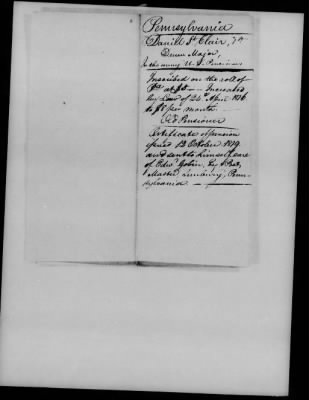 Pennsylvania
Daniel St. Clair,
Drum Major,
in the army U.S. Pensioner
Inscribed on the roll of
Pa. at $5 — Increased
by Law of 24 April 1816
to $8 per month. —
Old Pensioner
Certificate of pension
issued 13 October 1819
and sent to himself care
of Edw. Gobin, Esq. Post
Master, Sunbury, Penn-
sylvania —